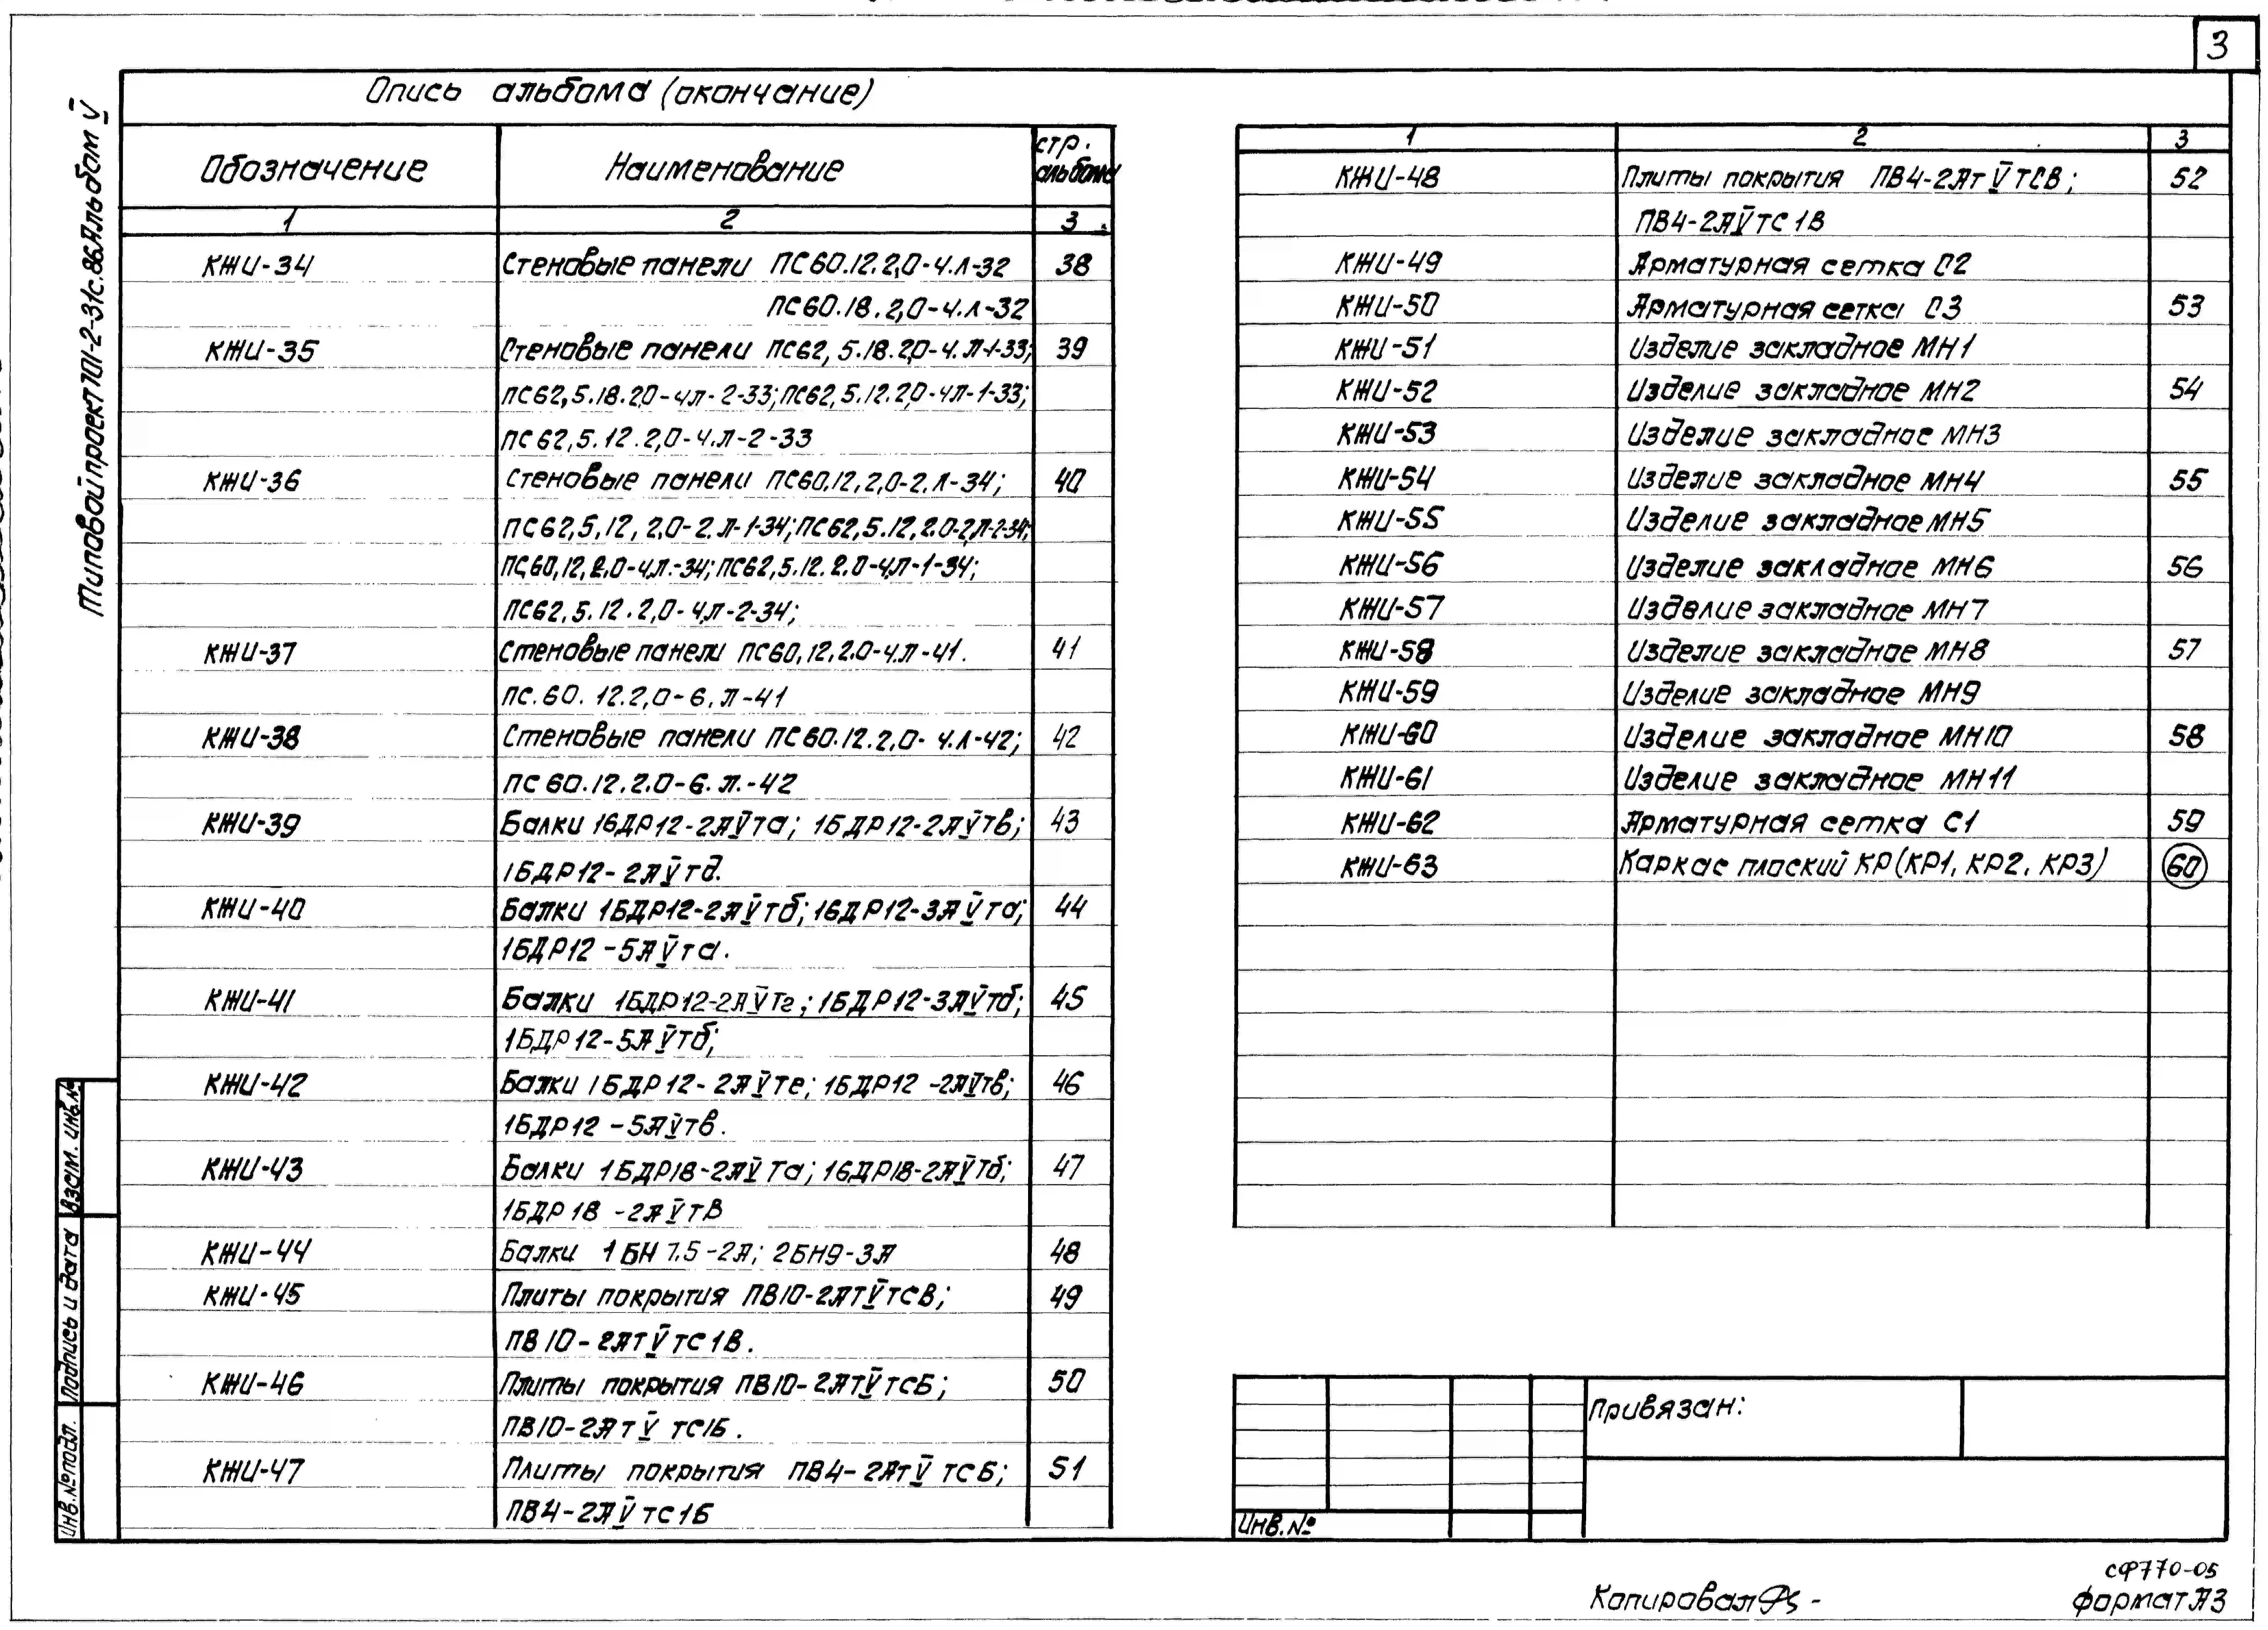 3
Опись альбома (окончание)
Типовой проект 701-2-31с.86 Альбом V
Обозначение Наименование стр. альбома
1 2 3
КЖИ-34 Стеновые панели ПС60.12.2,0-4.Л-32 38
ПС60.18.2,0-4.Л-32
КЖИ-35 Стеновые панели ПС62,5.18.2,0-4.Л-1-33; 39
ПС62,5.18.2,0-4Л-2-33; ПС62,5.12.2,0-4Л-1-33;
ПС62,5.12.2,0-4.Л-2-33
КЖИ-36 Стеновые панели ПС60.12,2,0-2.Л-34; 40
ПС62,5,12,2,0-2.Л-1-34; ПС62,5.12,2.0-2,Л-2-34;
ПС,60,12,2,0-4,Л.-34; ПС62,5.12.2.0-4Л-1-34;
ПС62,5.12.2,0-4,Л-2-34;
КЖИ-37 Стеновые панели ПС60,12,2.0-4.Л-41. 41
ПС.60.12.2,0-6.Л-41
КЖИ-38 Стеновые панели ПС60.12.2,0-4.Л-42; 42
ПС60.12.2.0-6.Л.-42
КЖИ-39 Балки 1БДР12-2АVта; 1БДР12-2АVтв; 43
1БДР12-2АVтд.
КЖИ-40 Балки 1БДР12-2АVтб; 1БДР12-3АVта; 44
1БДР12-5АVта.
КЖИ-41 Балки 1БДР12-2АVТг; 1БДР12-3АVтб; 45
1БДР12-5АVтб;
КЖИ-42 Балки 1БДР12-2АVте; 1БДР12-2АVтв; 46
1БДР12-5АVтв.
КЖИ-43 Балки 1БДР18-2АVта; 1БДР18-2АVтб; 47
1БДР18-2АVтв
КЖИ-44 Балки 1БН7.5-2А; 2БН9-3А 48
КЖИ-45 Плиты покрытия ПВ10-2АтVтсВ; 49
ПВ10-2АтVтс1В.
КЖИ-46 Плиты покрытия ПВ10-2АтVтсБ; 50
ПВ10-2АтV тс1Б.
КЖИ-47 Плиты покрытия ПВ4-2АтV тсБ; 51
ПВ4-2АVтс1Б
1 2 3
КЖИ-48 Плиты покрытия ПВ4-2АтVТСВ; 52
ПВ4-2АVтс1В
КЖИ-49 Арматурная сетка С2
КЖИ-50 Арматурная сетка С3 53
КЖИ-51 Изделие закладное МН1
КЖИ-52 Изделие закладное МН2 54
КЖИ-53 Изделие закладное МН3
КЖИ-54 Изделие закладное МН4 55
КЖИ-55 Изделие закладное МН5
КЖИ-56 Изделие закладное МН6 56
КЖИ-57 Изделие закладное МН7
КЖИ-58 Изделие закладное МН8 57
КЖИ-59 Изделие закладное МН9
КЖИ-60 Изделие закладное МН10 58
КЖИ-61 Изделие закладное МН11
КЖИ-62 Арматурная сетка С1 59
КЖИ-63 Каркас плоский КР(КР1, КР2, КР3) 60
Взам. инв.№
Подпись и дата
Инв.№подл.
Привязан:
Инв.№
СФ770-05
Копировал
Формат А3